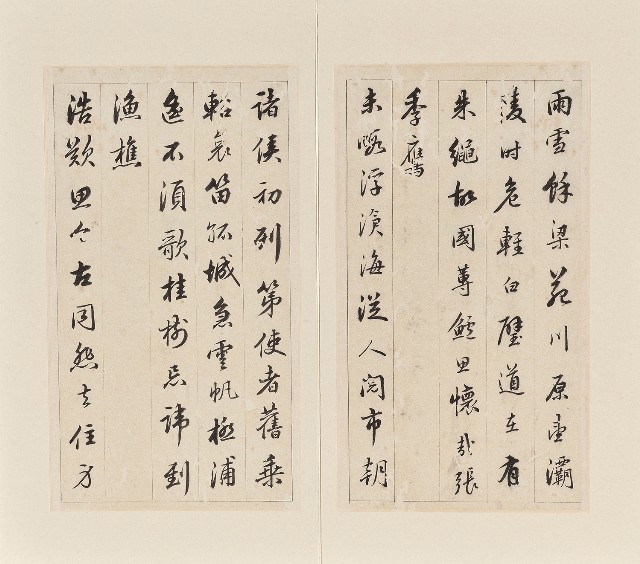 雨雪餘梁苑川原灞
陵時危輕白璧道在有
朱繩故國蓴鱸思懷哉張
季鷹
未暇浮滄海從人閱市朝
諸侯初列第使者舊乘
軺哀笛孤城急雲帆極浦
遙不須歌桂樹忌諱到
漁樵
浩歎思今古去住方